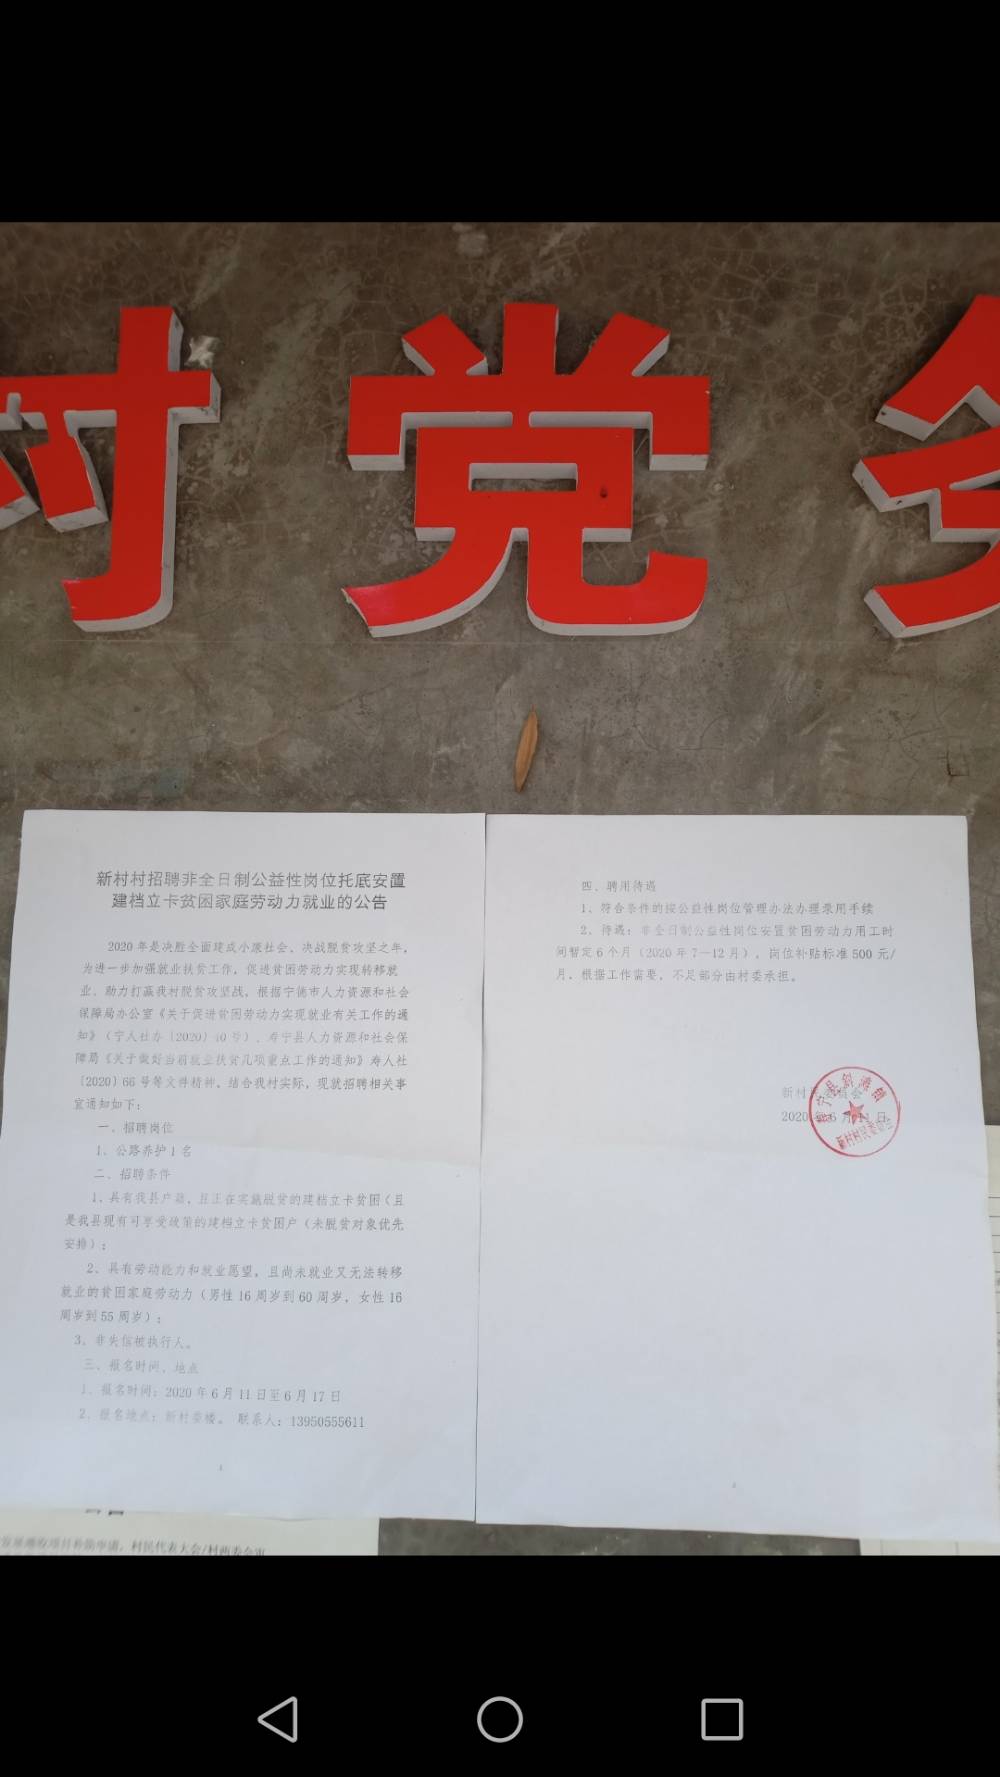 村 党 务
新村村招聘非全日制公益性岗位托底安置
建档立卡贫困家庭劳动力就业的公告
2020 年是决胜全面建成小康社会、决战脱贫攻坚之年，
为进一步加强就业扶贫工作，促进贫困劳动力实现转移就
业、助力打赢我村脱贫攻坚战，根据宁德市人力资源和社会
保障局办公室《关于促进贫困劳动力实现就业有关工作的通
知》（宁人社办〔2020〕40 号）、寿宁县人力资源和社会保
障局《关于做好当前就业扶贫几项重点工作的通知》寿人社
〔2020〕66 号等文件精神，结合我村实际，现就招聘相关事
宜通知如下：
一、招聘岗位
1、公路养护 1 名
二、招聘条件
1、具有我县户籍，且正在实施脱贫的建档立卡贫困（且
是我县现有可享受政策的建档立卡贫困户（未脱贫对象优先
安排）；
2、具有劳动能力和就业愿望，且尚未就业又无法转移
就业的贫困家庭劳动力（男性 16 周岁到 60 周岁，女性 16
周岁到 55 周岁）；
3、非失信被执行人。
三、报名时间、地点
1、报名时间：2020 年 6 月 11 日至 6 月 17 日
2、报名地点：新村委楼。 联系人：13950555611
1
四、聘用待遇
1、符合条件的按公益性岗位管理办法办理录用手续
2、待遇：非全日制公益性岗位安置贫困劳动力用工时
间暂定 6 个月（2020 年 7—12 月），岗位补贴标准 500 元/
月，根据工作需要，不足部分由村委承担。
新村村委会
2020 年 6 月 11 日
寿宁县斜滩镇
新村村民委员会
2
村民代表大会/村两委会审